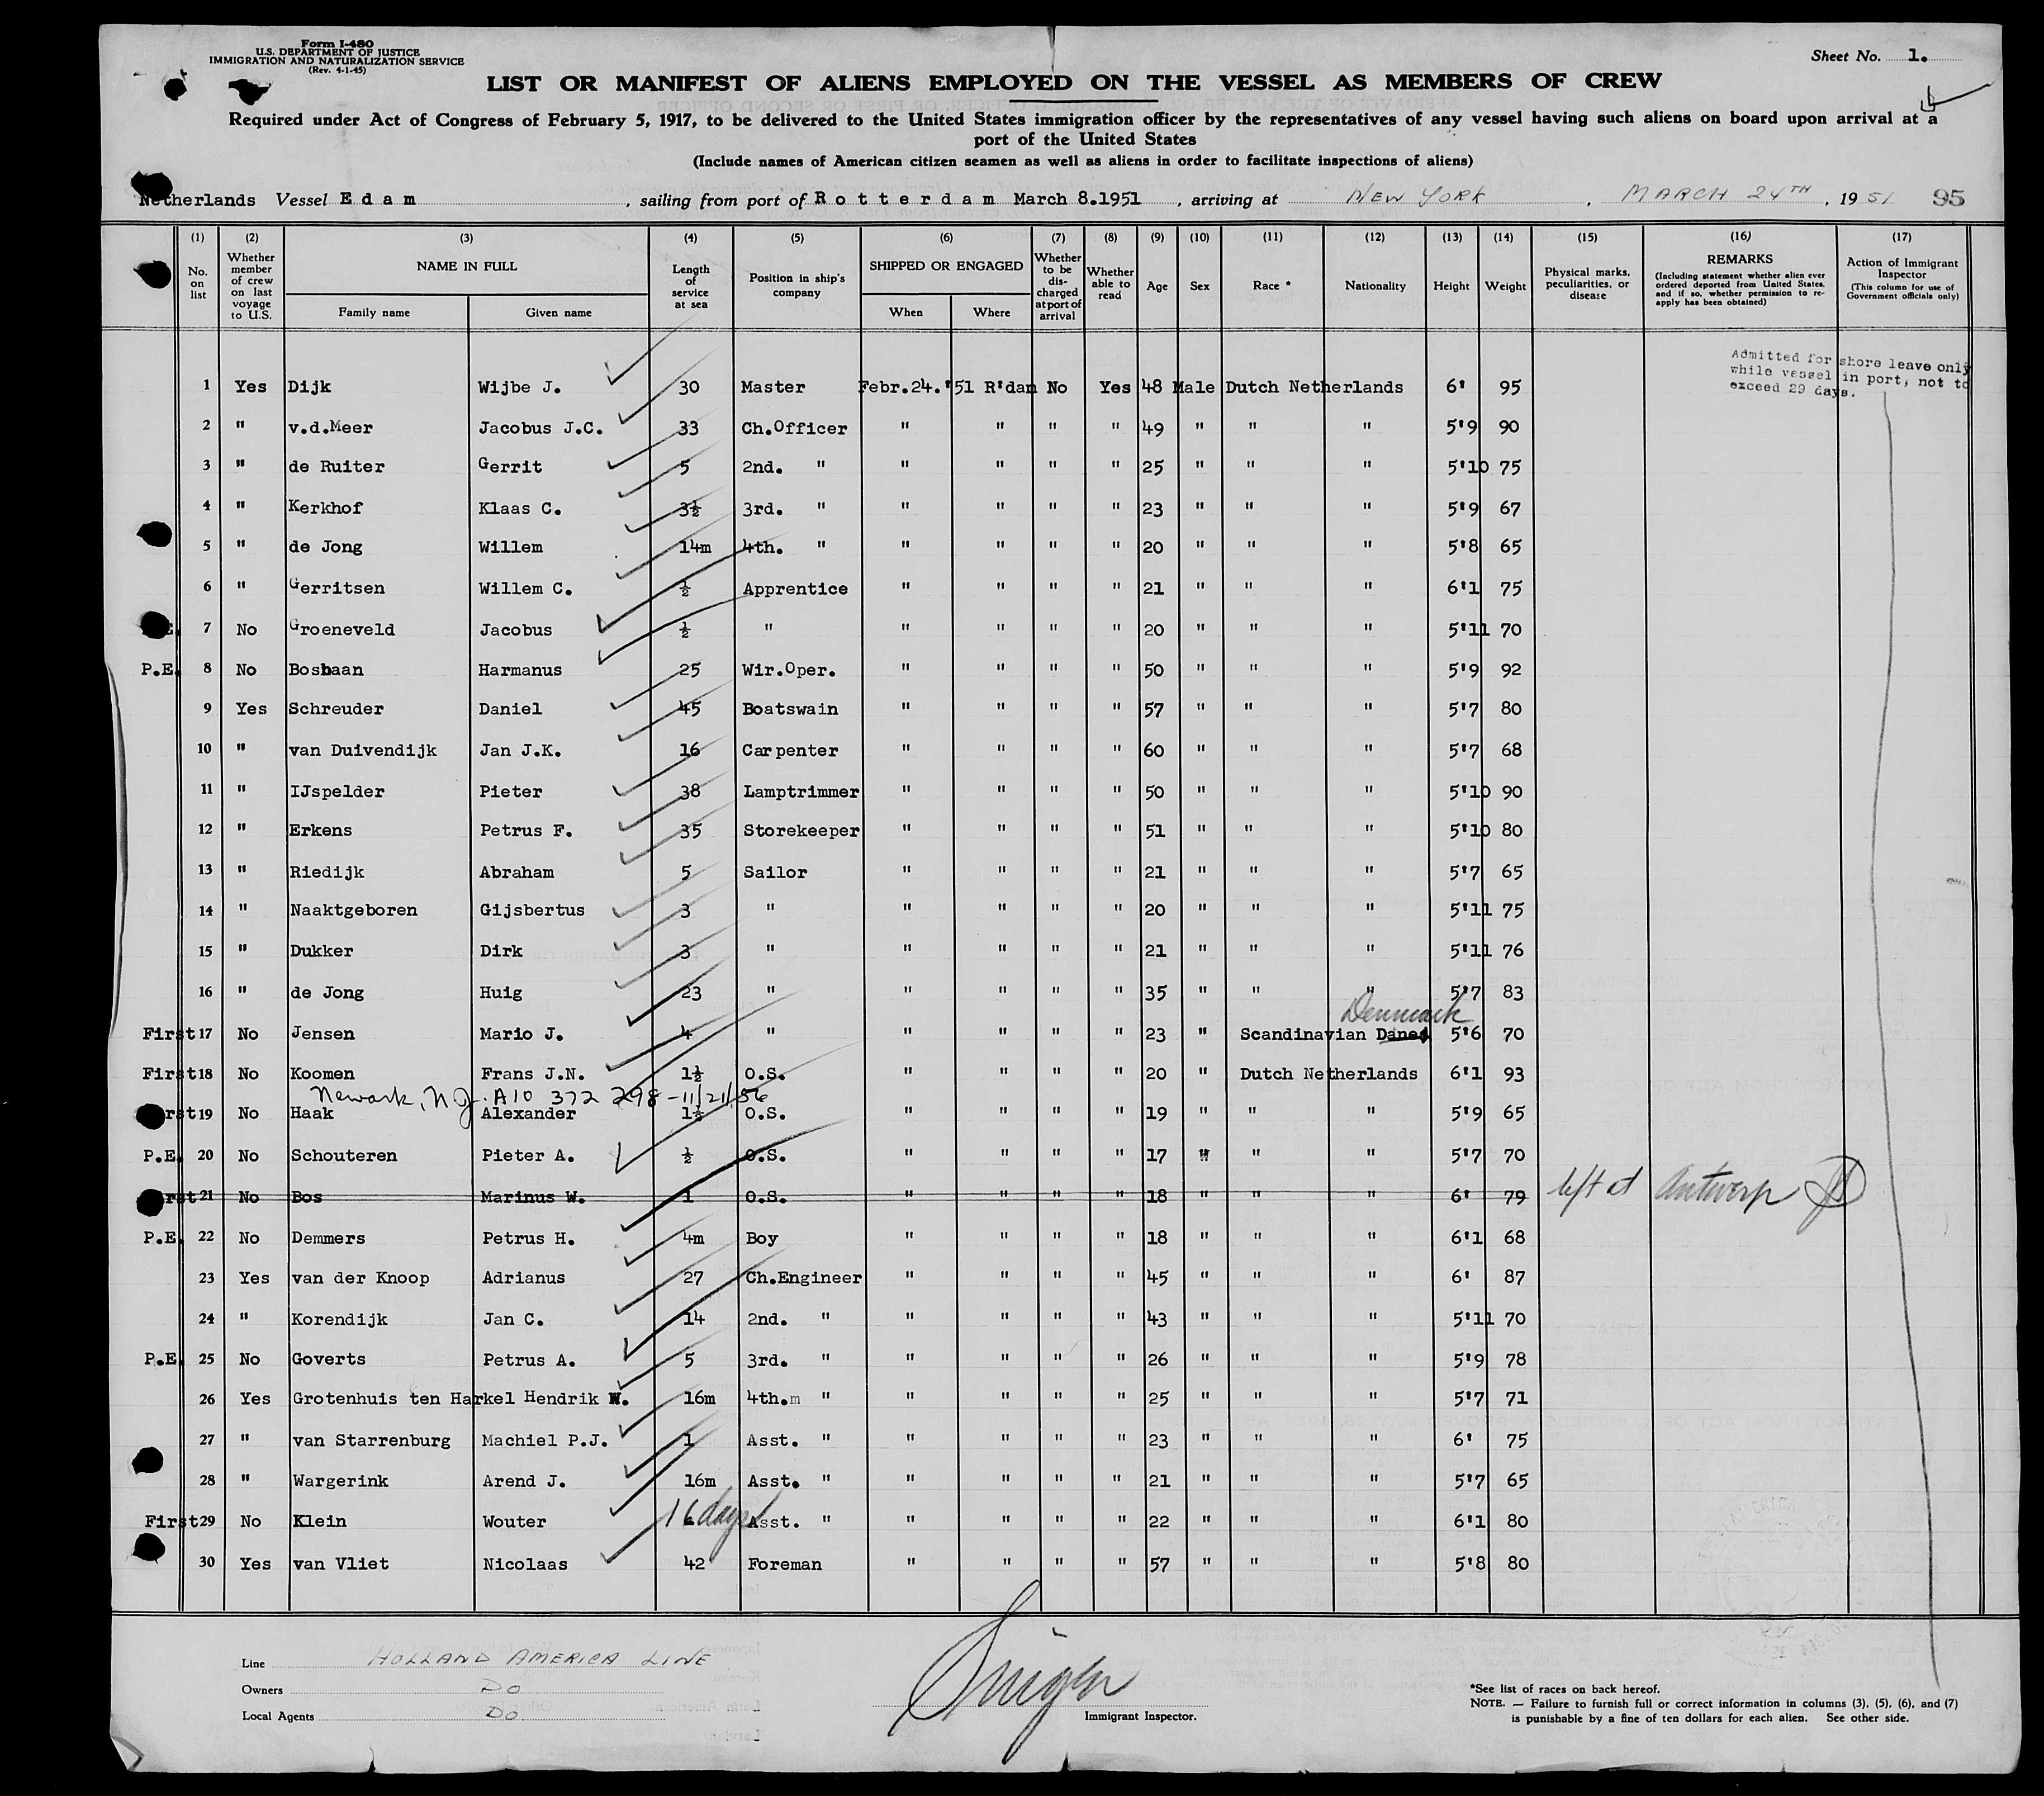 Form I-480
U.S. DEPARTMENT OF JUSTICE
IMMIGRATION AND NATURALIZATION SERVICE
(Rev. 4-1-45)
Sheet No. 1.
LIST OR MANIFEST OF ALIENS EMPLOYED ON THE VESSEL AS MEMBERS OF CREW
Required under Act of Congress of February 5, 1917, to be delivered to the United States immigration officer by the representatives of any vessel having such aliens on board upon arrival at a
port of the United States
(Include names of American citizen seamen as well as aliens in order to facilitate inspections of aliens)
Netherlands Vessel Edam, sailing from port of Rotterdam March 8.1951, arriving at NEW YORK, MARCH 24TH, 1951 95
(1) (2) (3) (4) (5) (6) (7) (8) (9) (10) (11) (12) (13) (14) (15) (16) (17)
No. on list Whether member of crew on last voyage to U.S. NAME IN FULL Family name Given name Length of service at sea Position in ship's company SHIPPED OR ENGAGED When Where Whether to be discharged at port of arrival Whether able to read Age Sex Race * Nationality Height Weight Physical marks, peculiarities, or disease REMARKS (Including statement whether alien ever ordered deported from United States, and if so, whether permission to reapply has been obtained) Action of Immigrant Inspector (This column for use of Government officials only)
Admitted for shore leave only
while vessel in port, not to
exceed 29 days.
1 Yes Dijk Wijbe J. 30 Master Febr.24.'51 R'dam No Yes 48 Male Dutch Netherlands 6' 95
2 " v.d.Meer Jacobus J.C. 33 Ch.Officer " " " " 49 " " " 5'9 90
3 " de Ruiter Gerrit 5 2nd. " " " " " 25 " " " 5'10 75
4 " Kerkhof Klaas C. 3½ 3rd. " " " " " 23 " " " 5'9 67
5 " de Jong Willem 14m 4th. " " " " " 20 " " " 5'8 65
6 " Gerritsen Willem C. ½ Apprentice " " " " 21 " " " 6'1 75
7 No Groeneveld Jacobus ½ " " " " " 20 " " " 5'11 70
P.E. 8 No Bosbaan Harmanus 25 Wir.Oper. " " " " 50 " " " 5'9 92
9 Yes Schreuder Daniel 45 Boatswain " " " " 57 " " " 5'7 80
10 " van Duivendijk Jan J.K. 16 Carpenter " " " " 60 " " " 5'7 68
11 " IJspelder Pieter 38 Lamptrimmer " " " " 50 " " " 5'10 90
12 " Erkens Petrus F. 35 Storekeeper " " " " 51 " " " 5'10 80
13 " Riedijk Abraham 5 Sailor " " " " 21 " " " 5'7 65
14 " Naaktgeboren Gijsbertus 3 " " " " " 20 " " " 5'11 75
15 " Dukker Dirk 3 " " " " " 21 " " " 5'11 76
16 " de Jong Huig 23 " " " " " 35 " " " 5'7 83
Denmark
First 17 No Jensen Mario J. 4 " " " " " 23 " Scandinavian Danes 5'6 70
First 18 No Koomen Frans J.N. 1½ O.S. " " " " 20 " Dutch Netherlands 6'1 93
Newark, N.J. A10 372 298 - 11/21/56
First 19 No Haak Alexander 1½ O.S. " " " " 19 " " " 5'9 65
P.E. 20 No Schouteren Pieter A. ½ O.S. " " " " 17 " " " 5'7 70
First 21 No Bos Marinus W. 1 O.S. " " " " 18 " " " 6' 79 left at Antwerp
P.E. 22 No Demmers Petrus H. 4m Boy " " " " 18 " " " 6'1 68
23 Yes van der Knoop Adrianus 27 Ch.Engineer " " " " 45 " " " 6' 87
24 " Korendijk Jan C. 14 2nd. " " " " " 43 " " " 5'11 70
P.E. 25 No Goverts Petrus A. 5 3rd. " " " " " 26 " " " 5'9 78
26 Yes Grotenhuis ten Harkel Hendrik W. 16m 4th.m " " " " " 25 " " " 5'7 71
27 " van Starrenburg Machiel P.J. 1 Asst. " " " " " 23 " " " 6' 75
28 " Wargerink Arend J. 16m Asst. " " " " " 21 " " " 5'7 65
First 29 No Klein Wouter 16 days Asst. " " " " " 22 " " " 6'1 80
30 Yes van Vliet Nicolaas 42 Foreman " " " " 57 " " " 5'8 80
Line HOLLAND AMERICA LINE
Owners DO
Local Agents DO
Immigrant Inspector.
*See list of races on back hereof.
NOTE. — Failure to furnish full or correct information in columns (3), (5), (6), and (7)
is punishable by a fine of ten dollars for each alien. See other side.